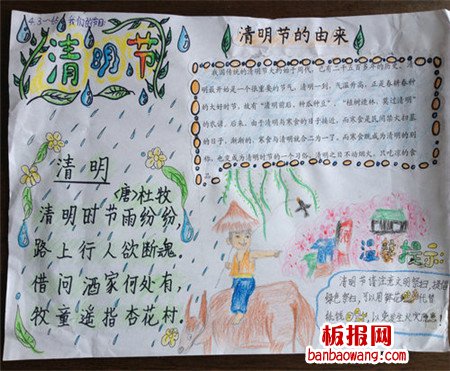 4.3~4.5 我们的节日
清明节
清明节的由来
我国传统的清明节大约始于周代，已有二千五百多年的历史。清
明最开始是一个很重要的节气，清明一到，气温升高，正是春耕春种
的大好时节，故有“清明前后，种瓜种豆”。“植树造林，莫过清明”
的农谚。后来，由于清明与寒食的日子接近，而寒食是民间禁火扫墓
的日子，渐渐的，寒食与清明就合二为一了，而寒食既成为清明的别
称，也变成为清明时节的一个习俗，清明之日不动烟火，只吃凉的食
清明
(唐)杜牧
清明时节雨纷纷，
路上行人欲断魂。
借问酒家何处有，
牧童遥指杏花村。
温馨提示
清明节请注意文明祭扫，提倡
绿色祭扫，可以用鲜花
纸钱
以免发生火灾
板报网
banbaowang.com